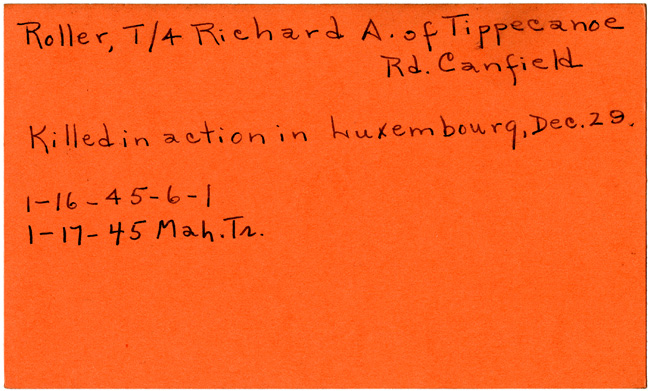 Roller, T/4 Richard A. of Tippecanoe
Rd. Canfield
Killed in action in Luxembourg, Dec. 29.
1-16-45-6-1
1-17-45 Mah. Tr.